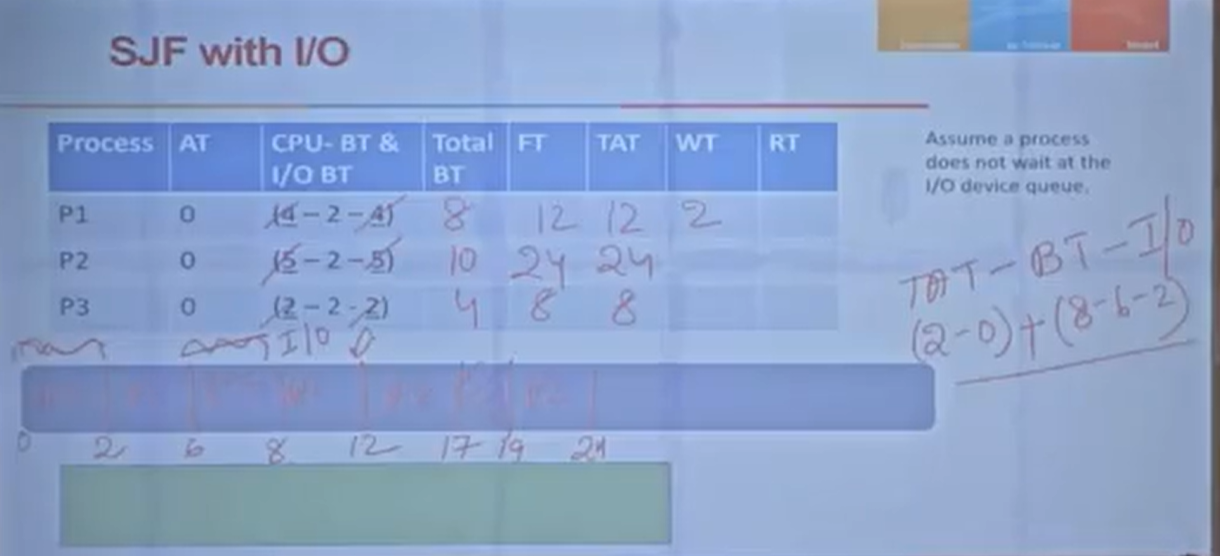 SJF with I/O
Process AT CPU- BT & I/O BT Total BT FT TAT WT RT
P1 0 (4 – 2 – 4) 8 12 12 2
P2 0 (5 – 2 – 5) 10 24 24
P3 0 (2 – 2 - 2) 4 8 8
Assume a process
does not wait at the
I/O device queue.
TAT – BT – I/O
(2-0)+(8-6-2)
I/O
0 2 6 8 12 17 19 24